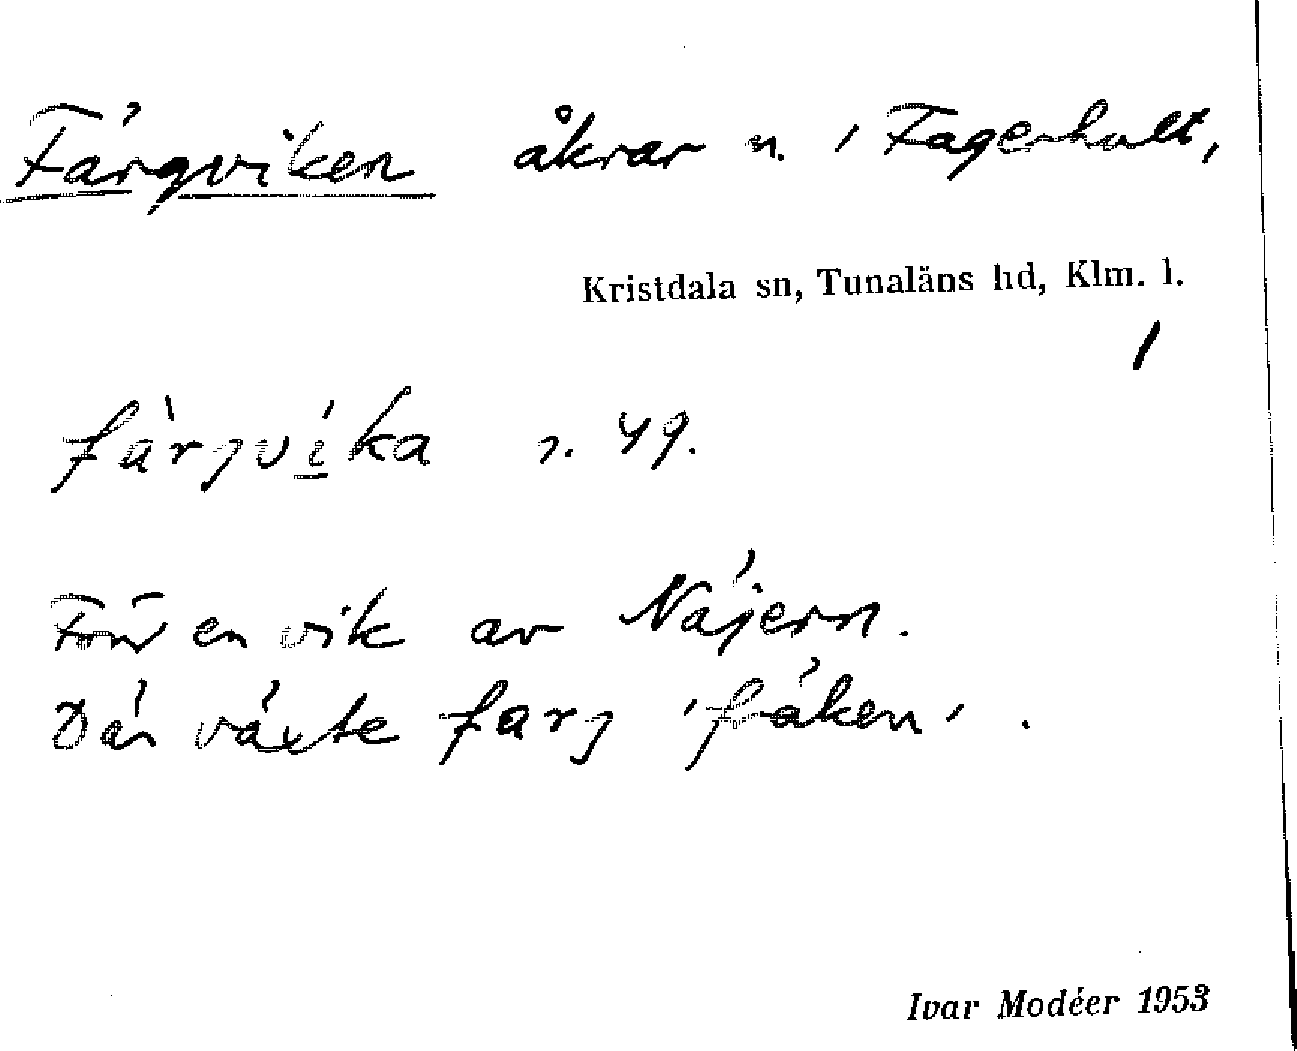 Färgviken åkrar n. i Fagerhult,
Kristdala sn, Tunaläns hd, Klm. l.
färjvika s. 49.
Förr en vik av Näjern.
Där växte farj 'fräken'.
Ivar Modéer 1953